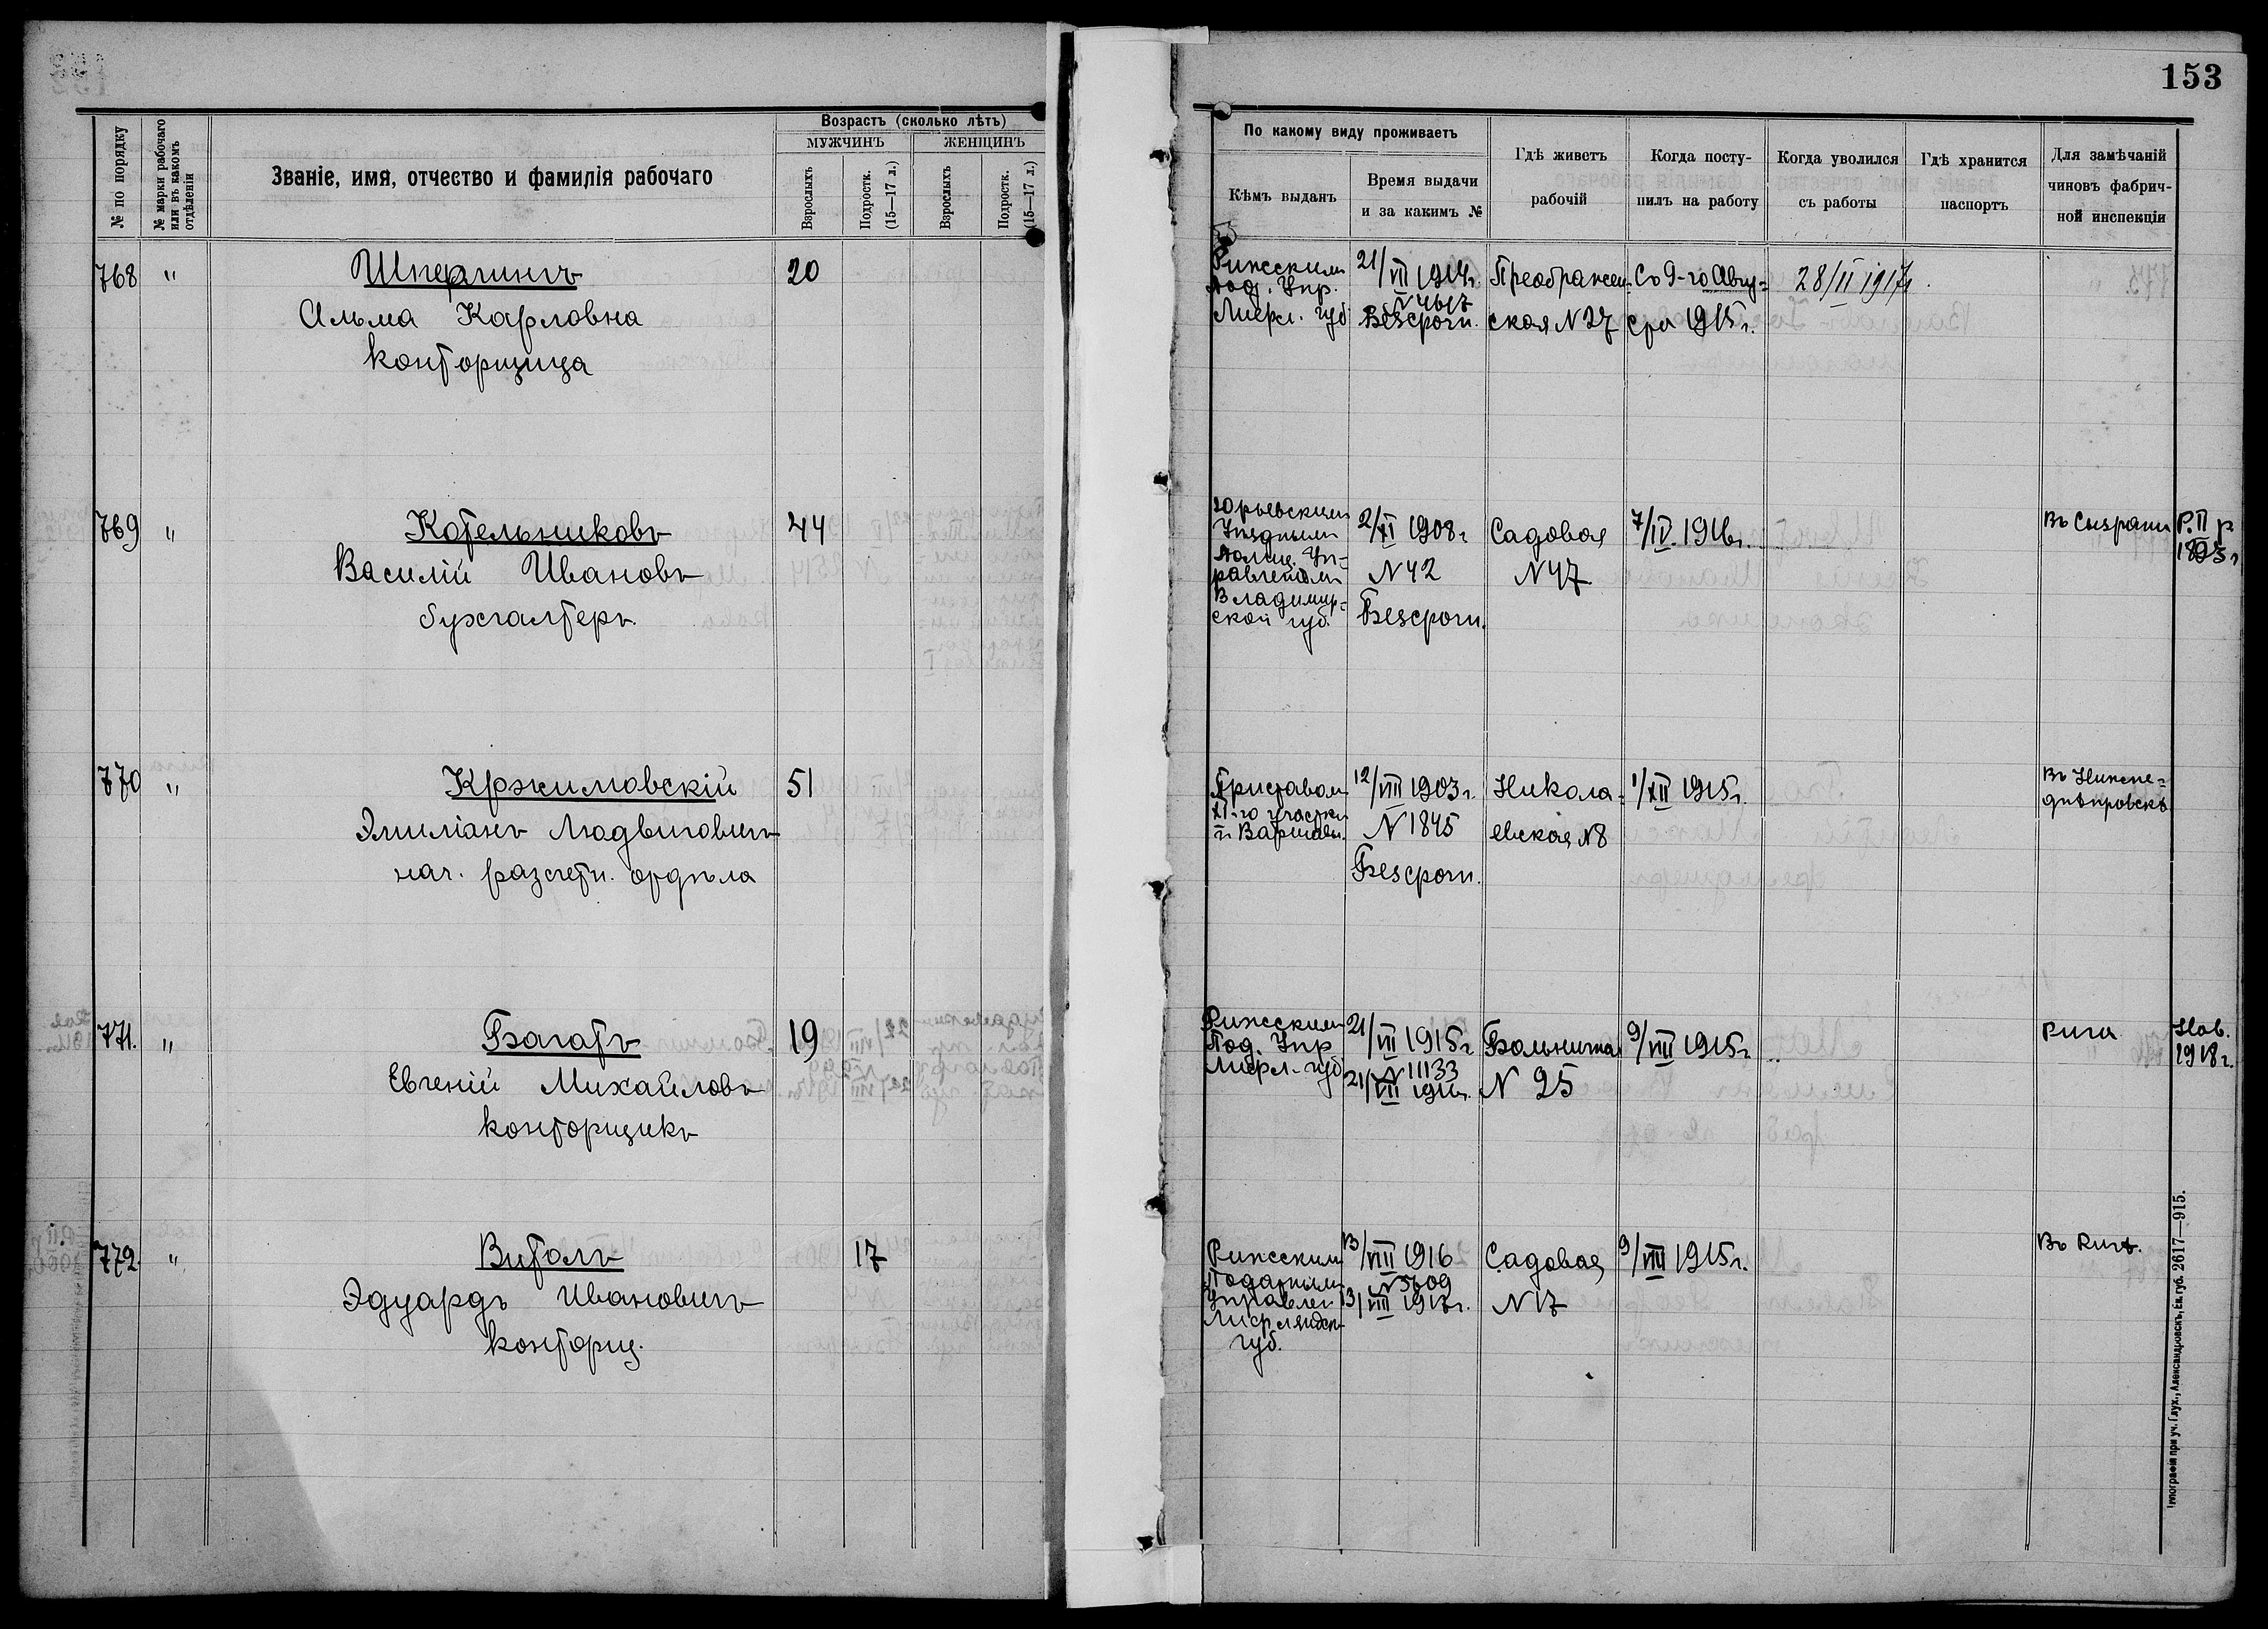 153
№ по порядку
№ марки рабочаго или въ какомъ отдѣленіи
Званіе, имя, отчество и фамилія рабочаго
Возрастъ (сколько лѣтъ)
МУЖЧИНЪ
ЖЕНЩИНЪ
Взрослыхъ
Подростк. (15—17 л.)
Взрослыхъ
Подростк. (15—17 л.)
По какому виду проживаетъ
Кѣмъ выданъ
Время выдачи
и за какимъ №
Гдѣ живетъ
рабочій
Когда посту-
пилъ на работу
Когда уволился
съ работы
Гдѣ хранится
паспортъ
Для замѣчаній
чиновъ фабрич-
ной инспекціи
768 "
Шперлингъ
Альма Карловна
конторщица
20
Рижскимъ
Под. Упр.
Лифл. губ
21/VII 1914 г.
N 4617
Безсрочн.
Преображен-
ская N 27
Съ 9-го Авгу-
ста 1915 г.
28/II 1917 г
769 "
Котельниковъ
Василій Ивановъ
бухгалтеръ
44
Юрьевскимъ
Уѣзднымъ
Полиц. Уп-
равленіемъ
Владимир-
ской губ.
2/XI 1908 г
N 42
Безсрочн.
Садовая
N 47
7/IV. 1916 г.
Въ Сызрани
Р. II р
1895 г
770 "
Кржимовскій
Эмиліанъ Людвиговичъ
нач. разсчетн. отдѣла
51
Приставомъ
XI-го участка
г. Варшавы.
12/VIII 1903 г.
N 1845
Безсрочн.
Никола-
евская N 8
1/XII 1915 г.
Въ Нижне-
днѣпровскѣ
771. "
Багатъ
Евгеній Михайловъ
конторщикъ
19
Рижскимъ
Под. Упр
Лифл. губ
21/VII 1915 г
N 11133
21/VII 1916 г.
Больничная
N 25
9/VIII 1915 г
Рига
Нов.
1918 г.
772. "
Витоль
Эдуардъ Ивановичъ
конторщ.
17
Рижскимъ
Податнымъ
Управлен
Лифляндск
губ.
13/VIII 1916
N 5609
13/VIII 1917 г.
Садовая
N 17
9/VIII 1915 г.
Въ Ригѣ.
Типографія при уч. Глух., Александровскъ, Ек. губ. 2617—915.